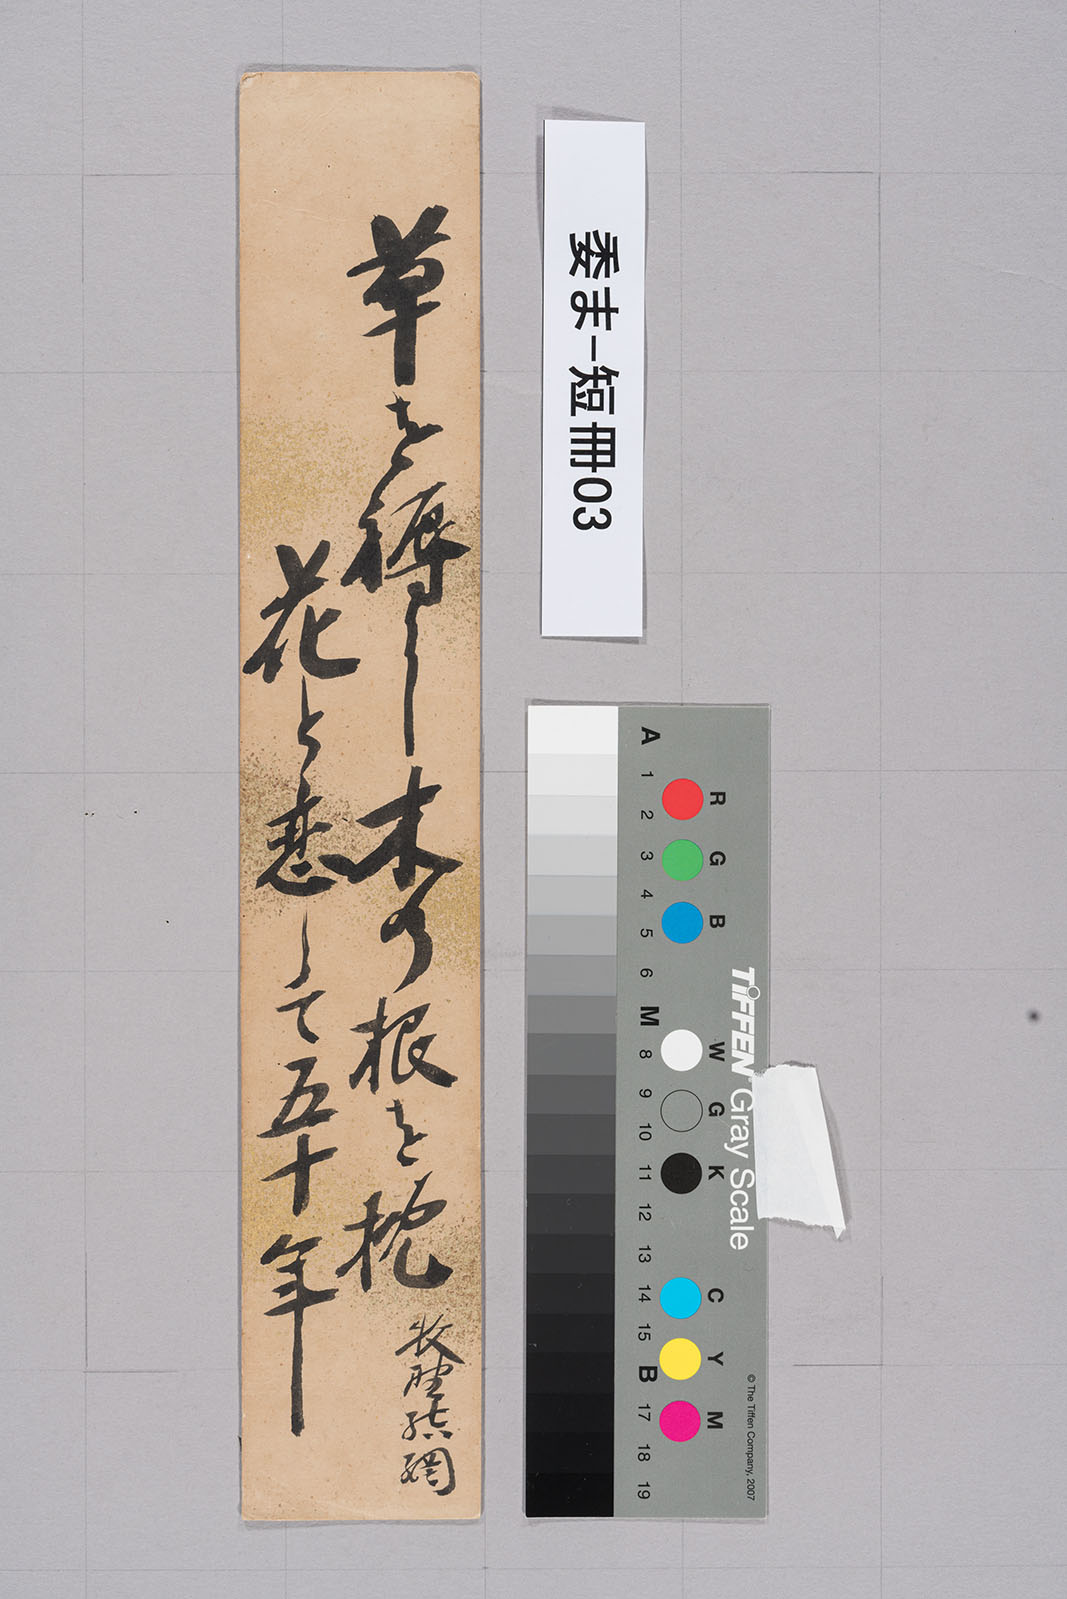 草を褥に木の根を枕
花と恋して五十年
牧野結網
委ま-短冊03
TIFFEN Gray Scale
© The Tiffen Company, 2007
R G B W G K C Y M
A 1 2 3 4 5 6 M 8 9 10 11 12 13 14 15 B 17 18 19